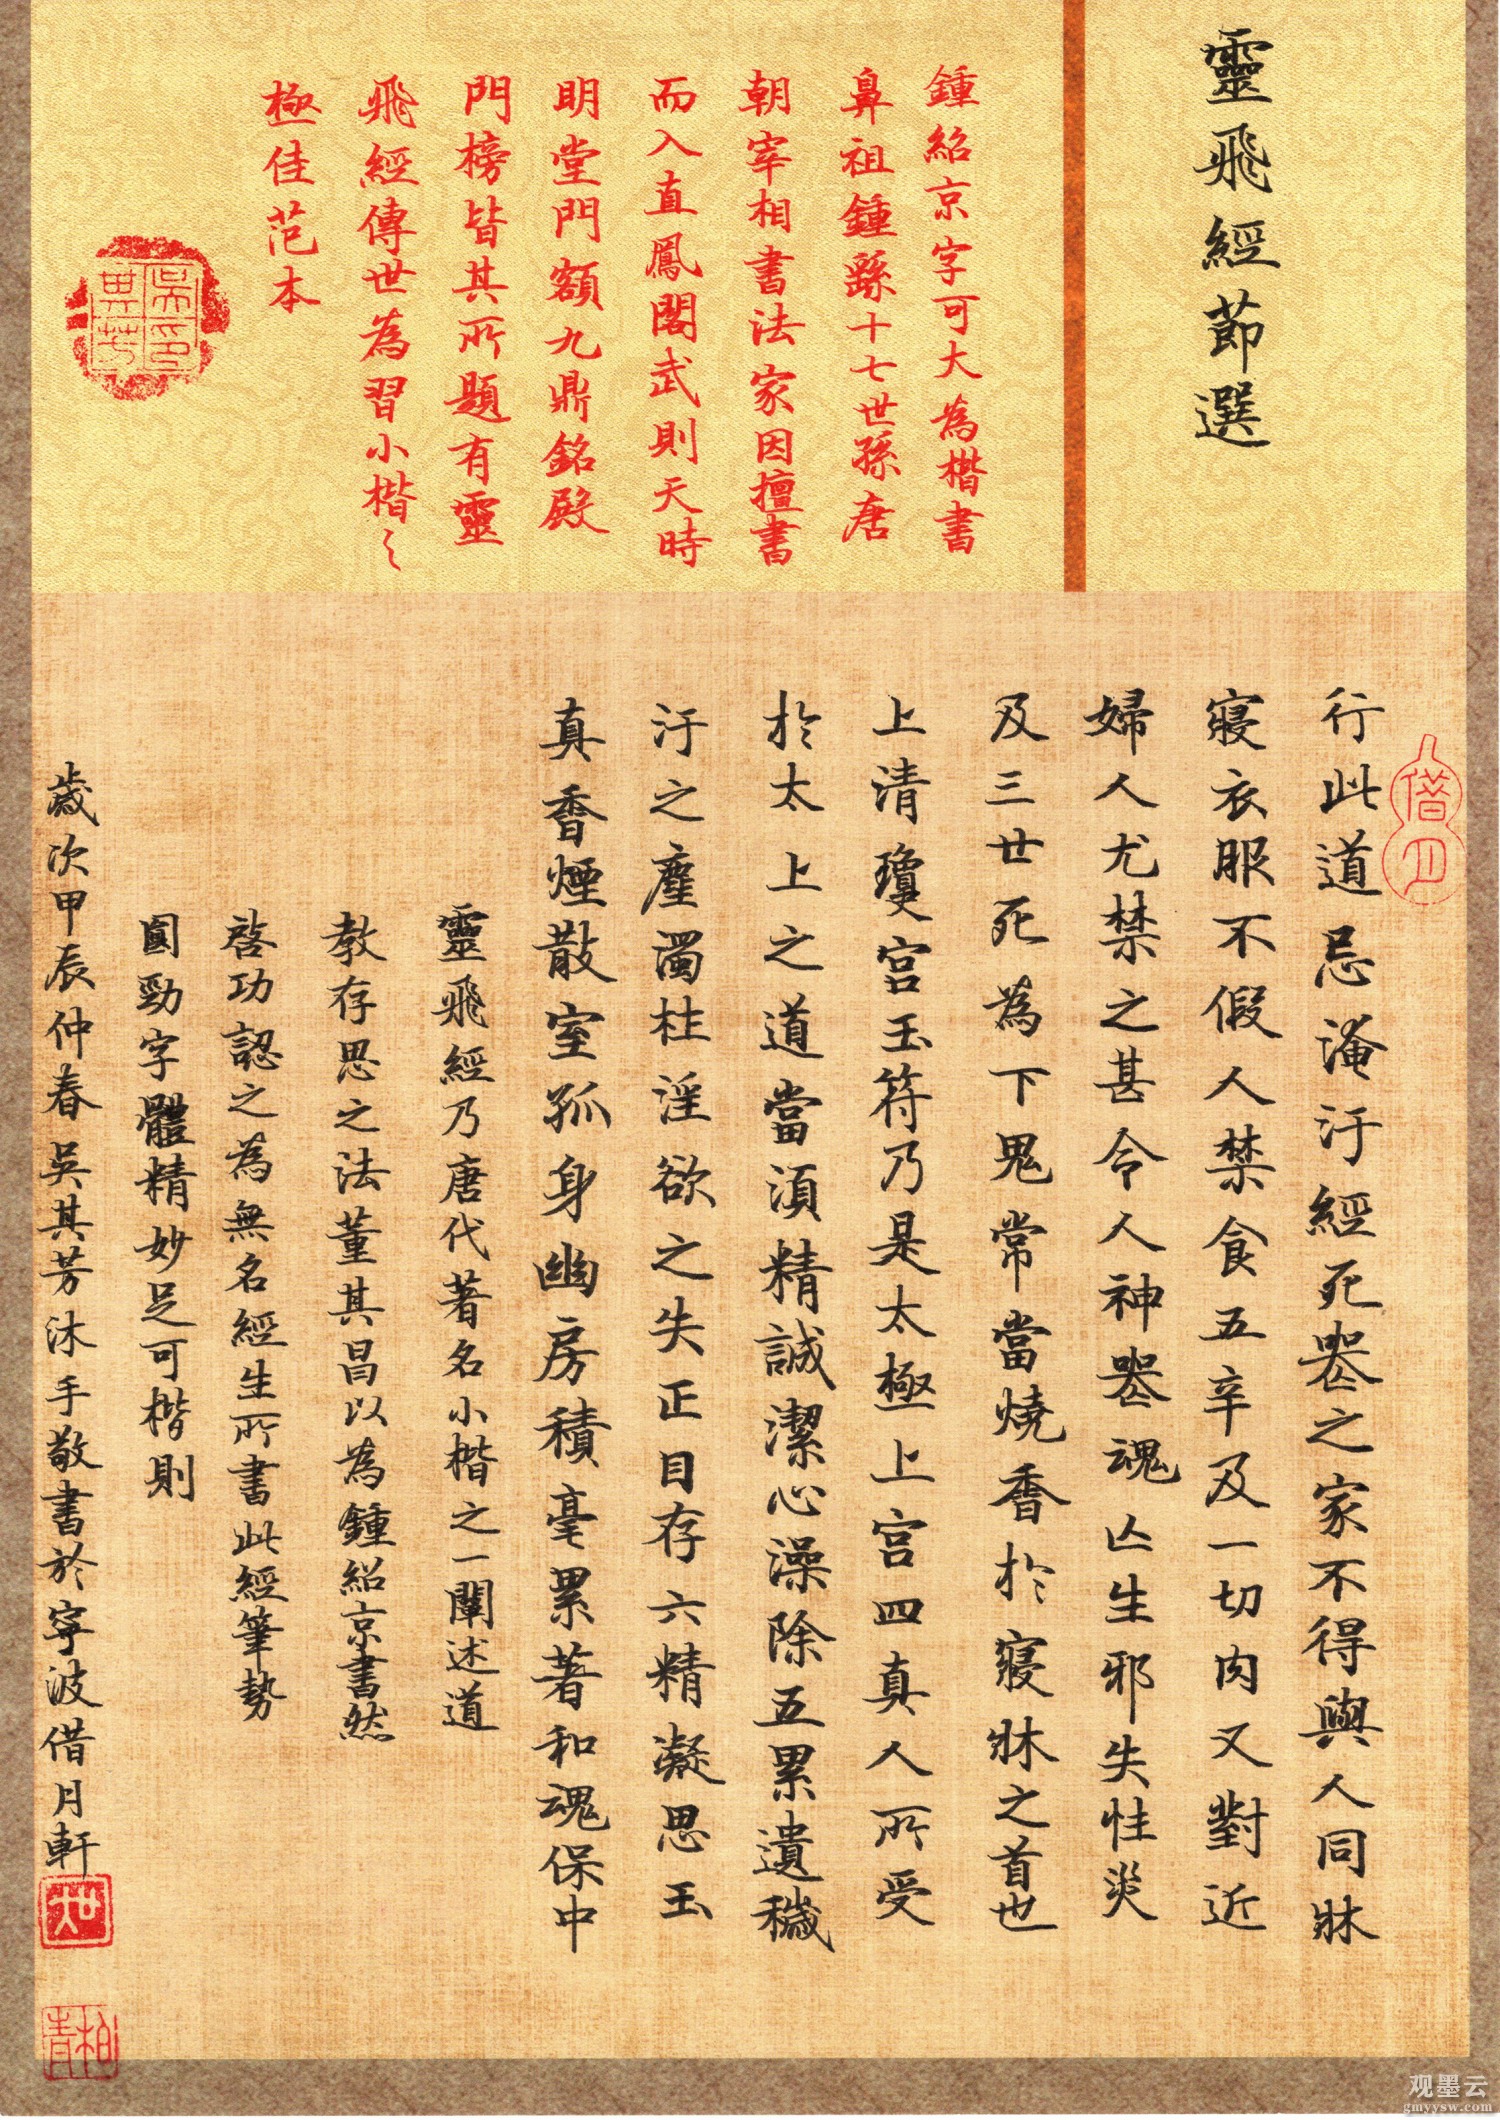 靈飛經節選
鍾紹京字可大為楷書
鼻祖鍾繇十七世孫唐
朝宰相書法家因擅書
而入直鳳閣武則天時
明堂門額九鼎銘殿
門榜皆其所題有靈
飛經傳世為習小楷之
極佳范本
借月
行此道忌淹汙經死喪之家不得與人同牀
寢衣服不假人禁食五辛及一切肉又對近
婦人尤禁之甚令人神喪魂亡生邪失性災
及三世死為下鬼常當燒香於寢牀之首世
上清瓊宮玉符乃是太極上宮四真人所受
於太上之道當須精誠潔心澡除五累遺穢
汙之塵濁杜淫欲之失正目存六精凝思玉
真香煙散室孤身幽房積毫累著和魂保中
靈飛經乃唐代著名小楷之一闡述道
教存思之法董其昌以為鍾紹京書然
啓功認之為無名經生所書此經筆勢
圓勁字體精妙足可楷則
歲次甲辰仲春吳其芳沐手敬書於寧波借月軒
观墨云
gmyysw.com